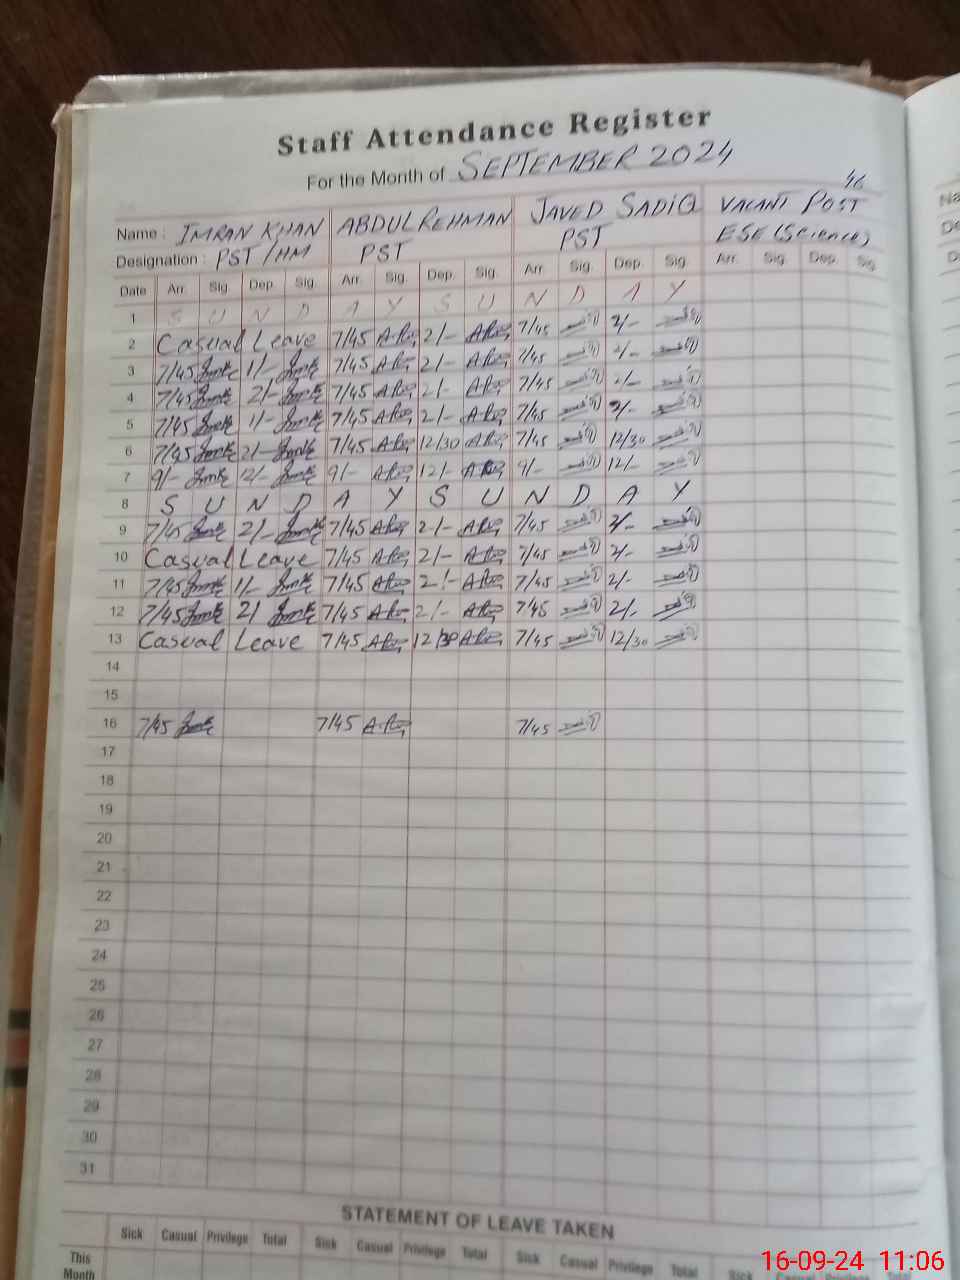 Staff Attendance Register
For the Month of SEPTEMBER 2024
46
Name : IMRAN KHAN ABDUL REHMAN JAVED SADIQ VACANT POST
Designation : PST/HM PST PST ESE (Science)
Date Arr. Sig. Dep. Sig. Arr. Sig. Dep. Sig. Arr. Sig. Dep. Sig. Arr. Sig. Dep. Sig.
1 S U N D A Y S U N D A Y
2 Casual Leave 7/45 2/- 7/45 2/-
3 7/45 1/- 7/45 2/- 7/45 2/-
4 7/45 2/- 7/45 2/- 7/45 2/-
5 7/45 1/- 7/45 2/- 7/45 2/-
6 7/45 2/- 7/45 12/30 7/45 12/30
7 9/- 12/- 9/- 12/- 9/- 12/-
8 S U N D A Y S U N D A Y
9 7/45 2/- 7/45 2/- 7/45 2/-
10 Casual Leave 7/45 2/- 7/45 2/-
11 7/45 1/- 7/45 2/- 7/45 2/-
12 7/45 2/ 7/45 2/- 7/45 2/-
13 Casual Leave 7/45 12/30 7/45 12/30
14
15
16 7/45 7/45 7/45
17
18
19
20
21
22
23
24
25
26
27
28
29
30
31
STATEMENT OF LEAVE TAKEN
Sick Casual Privilege Total Sick Casual Privilege Total Sick Casual Privilege Total Sick Casual Privilege Total
This
Month
16-09-24 11:06